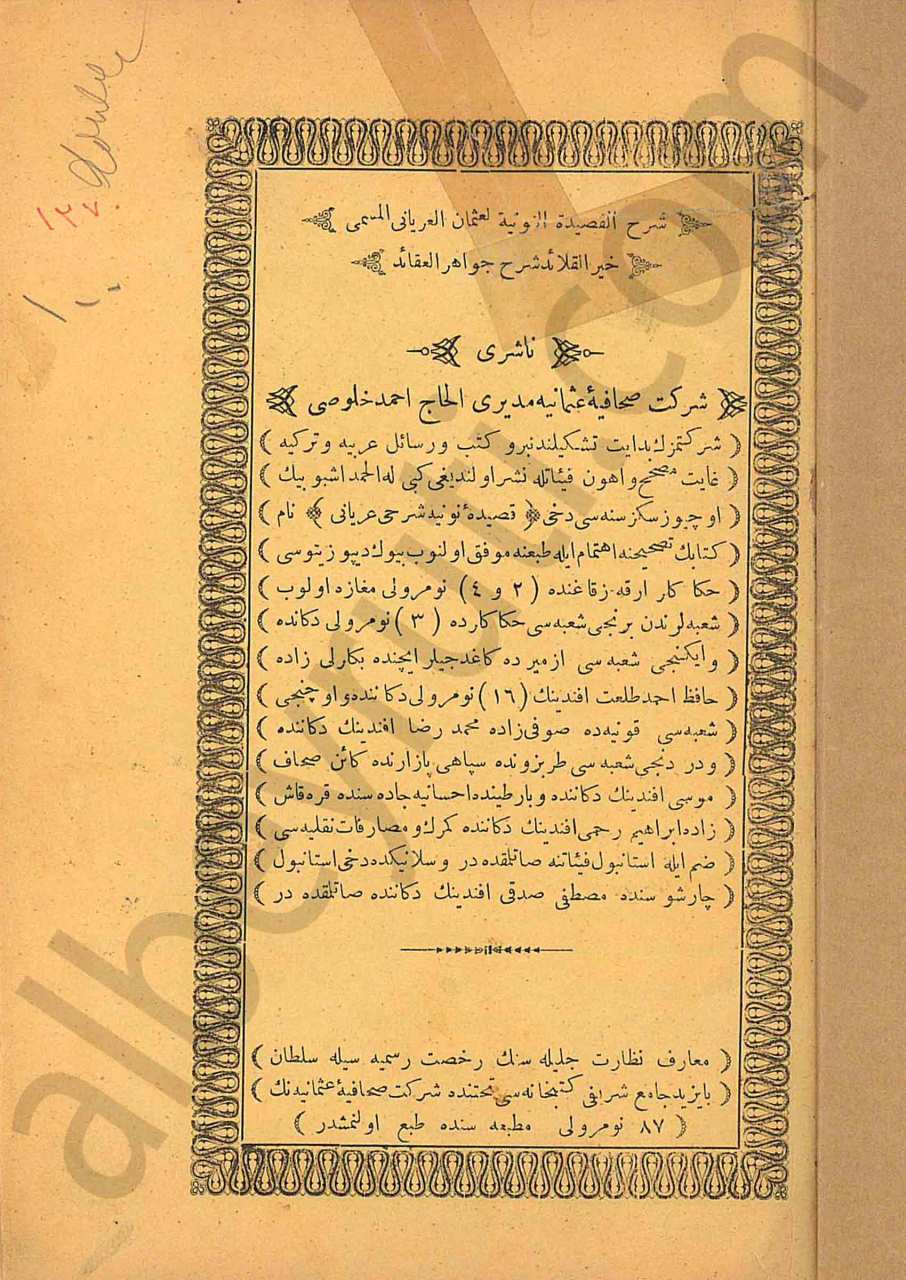 شرح القصيدة النونية لعثمان العريانى المسمى
خير القلائد شرح جواهر العقائد
ناشرى
شركت صحافيهٔ عثمانيه مديرى الحاج احمد خلوصى
( شركتمزك بدايت تشكيلندنبرو كتب و رسائل عربيه و تركيه )
( غايت مصحح و اهون فيئاتله نشر اولنديغى كبى له الحمد اشبو بيك )
( اوچيوز سكز سنه سى دخى ﴿ قصيدهٔ نونيه شرحى عريانى ﴾ نام )
( كتابك تصحيحنه اهتمام ايله طبعنه موفق اولنوب بيوك ديپوزيتوسى )
( حكاكلر ارقه زقاغنده ( ٢ و ٤ ) نومرولى مغازه اولوب )
( شعبه لرندن برنجى شعبه سى حكاكلرده ( ٣ ) نومرولى دكانده )
( و ايكنجى شعبه سى ازميرده كاغدجيلر ايچنده بكارلى زاده )
( حافظ احمد طلعت افندينك ( ١٦ ) نومرولى دكاننده و اوچنجى )
( شعبه سى قونيه ده صوفى زاده محمد رضا افندينك دكاننده )
( و دردنجى شعبه سى طربزونده سپاهى پازارنده كائن صحاف )
( موسى افندينك دكاننده و بارطينده احسانيه جاده سنده قره قاش )
( زاده ابراهيم رحمى افندينك دكاننده كمرك و مصارفات نقليه سى )
( ضم ايله استانبول فيئاتنه صاتلقده در و سلانيكده دخى استانبول )
( چارشوسنده مصطفى صدقى افندينك دكاننده صاتلقده در )
( معارف نظارت جليله سنك رخصت رسميه سيله سلطان )
( بايزيد جامع شريفى كتبخانه سى تحتنده شركت صحافيهٔ عثمانيه نك )
( ٨٧ نومرولى مطبعه سنده طبع اولنمشدر )
albeyruti.com
١٣٧